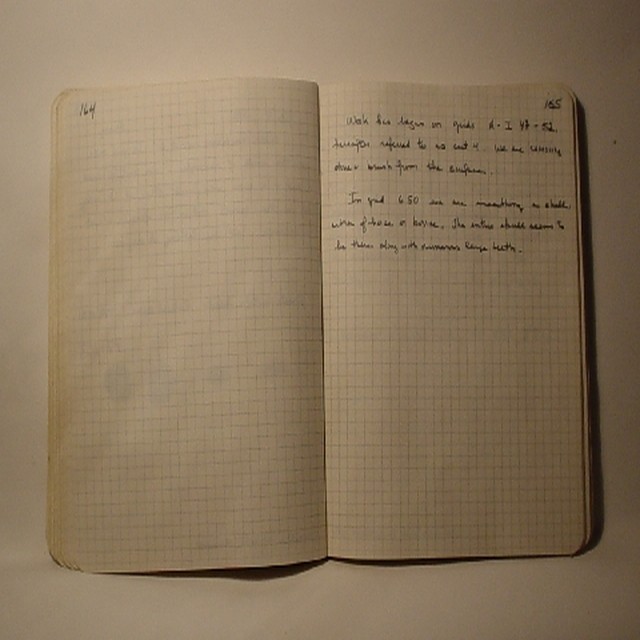 164
165
Work has begun on grids A-I 47-52,
referred to as unit 4. We are removing
brush from the surface.
In grid G50 we are a skull
either of horse or bovine. The entire skull seems to
be there along with numerous large teeth.